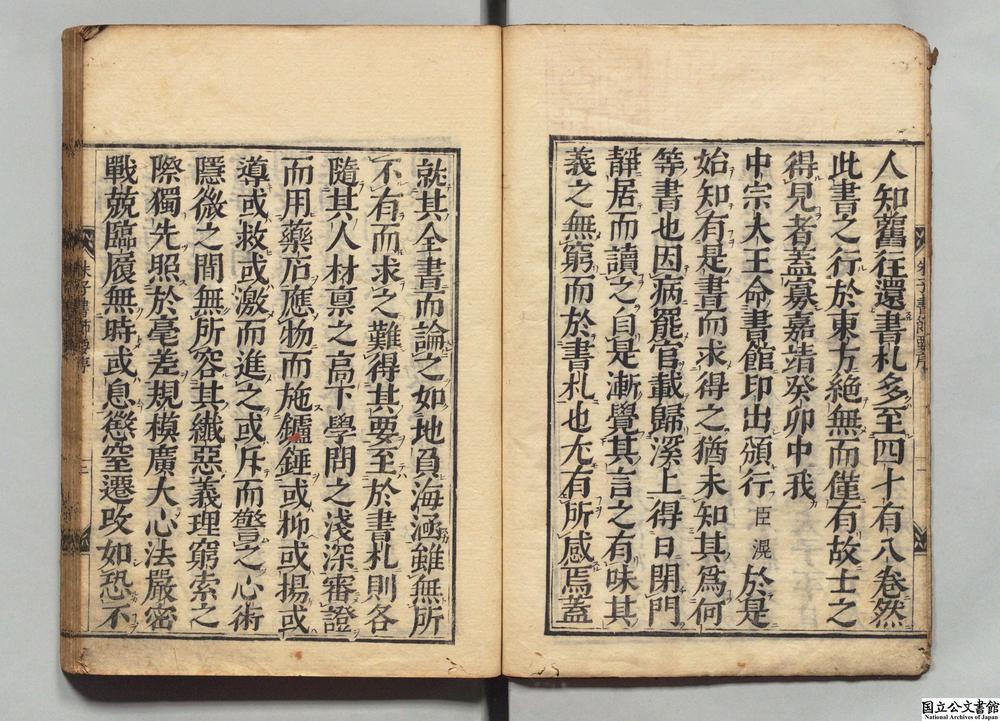 人知舊徃還書札多至四十有八卷然
此書之行於東方絶無而僅有故士之
得見者蓋寡嘉靖癸卯中我
中宗大王命書館印出頒行臣滉於是
始知有是書而求得之猶未知其爲何
等書也因病罷官載歸溪上得日閉門
靜居而讀之自是漸覺其言之有味其
義之無窮而於書札也尤有所感焉蓋
就其全書而論之如地負海涵雖無所
不有而求之難得其要至於書札則各
隨其人材稟之高下學問之淺深審證
而用藥石應物而施鑪錘或抑或揚或
導或救或激而進之或斥而警之心術
隱微之間無所容其纖惡義理窮索之
際獨先照於毫差規模廣大心法嚴密
戰兢臨履無時或息懲窒遷改如恐不
国立公文書館
National Archives of Japan